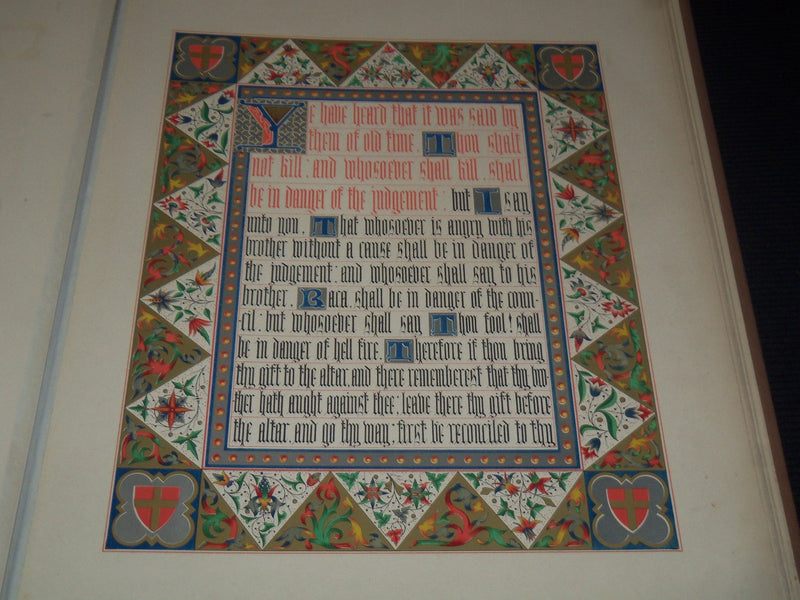 Ye have heard that it was said by
them of old time. Thou shalt
not kill: and whosoever shall kill. shall
be in danger of the judgement: but I say
unto you. That whosoever is angry with his
brother without a cause shall be in danger of
the judgement: and whosoever shall say to his
brother. Raca. shall be in danger of the coun-
cil: but whosoever shall say Thou fool! shall
be in danger of hell fire. Therefore if thou bring
thy gift to the altar. and there rememberest that thy bro
ther hath aught against thee: leave there thy gift before
the altar. and go thy way: first be reconciled to thy